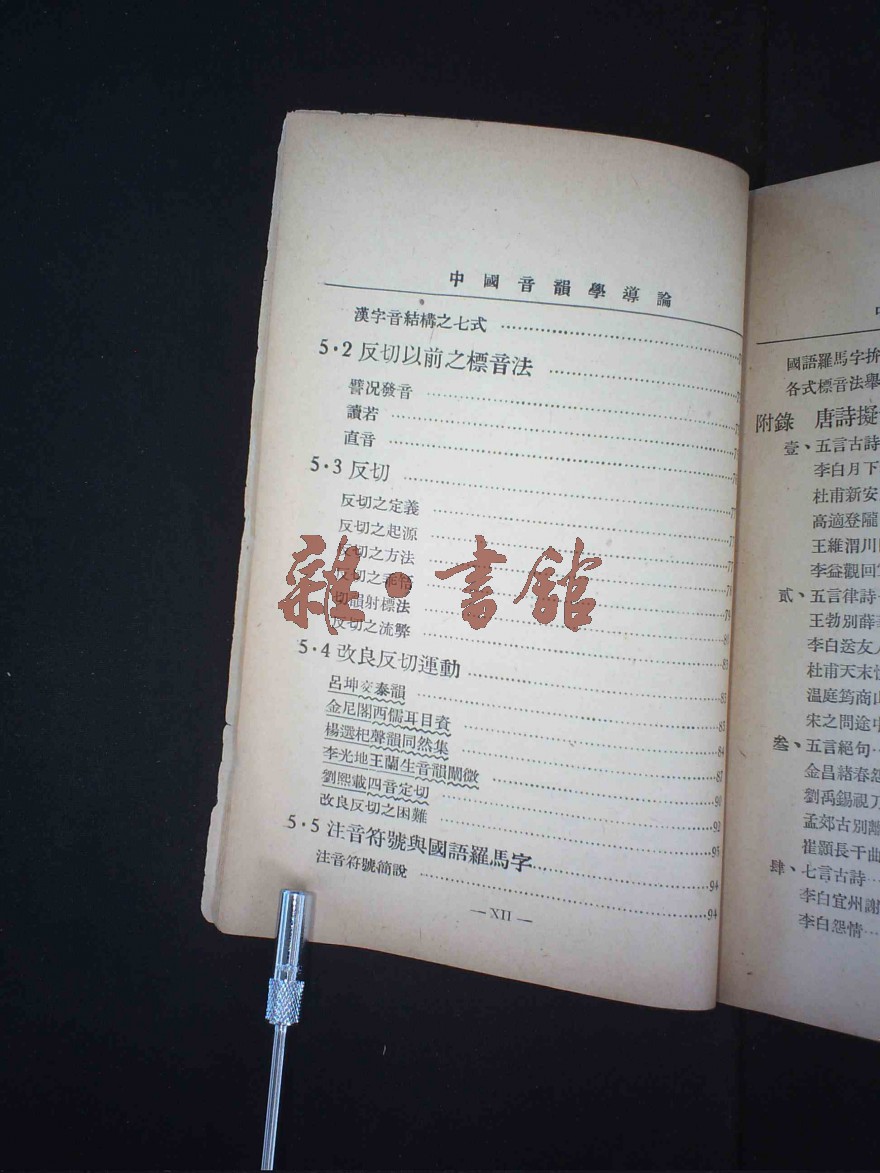 中國音韻學導論
漢字音結構之七式
5·2 反切以前之標音法
譬況發音
讀若
直音
5·3 反切 77
反切之定義
反切之起源
反切之方法
反切之
切韻射標法 79
反切之流弊
5·4 改良反切運動 83
呂坤交泰韻 83
金尼閣西儒耳目資 84
楊選杞聲韻同然集 87
李光地王蘭生音韻闡微 90
劉熙載四音定切 92
改良反切之困難 93
5·5 注音符號與國語羅馬字 94
注音符號簡說 94
— XII —
雜·書館
國語羅馬字拼
各式標音法舉
附錄 唐詩擬
壹、五言古詩
李白月下
杜甫新安
高適登隴
王維渭川
李益觀回
貳、五言律詩
王勃別薛
李白送友人
杜甫天末
温庭筠商山
宋之問途中
叁、五言絕句
金昌緒春怨
劉禹錫視刀
孟郊古別離
崔顥長干曲
肆、七言古詩
李白宣州謝
李白怨情